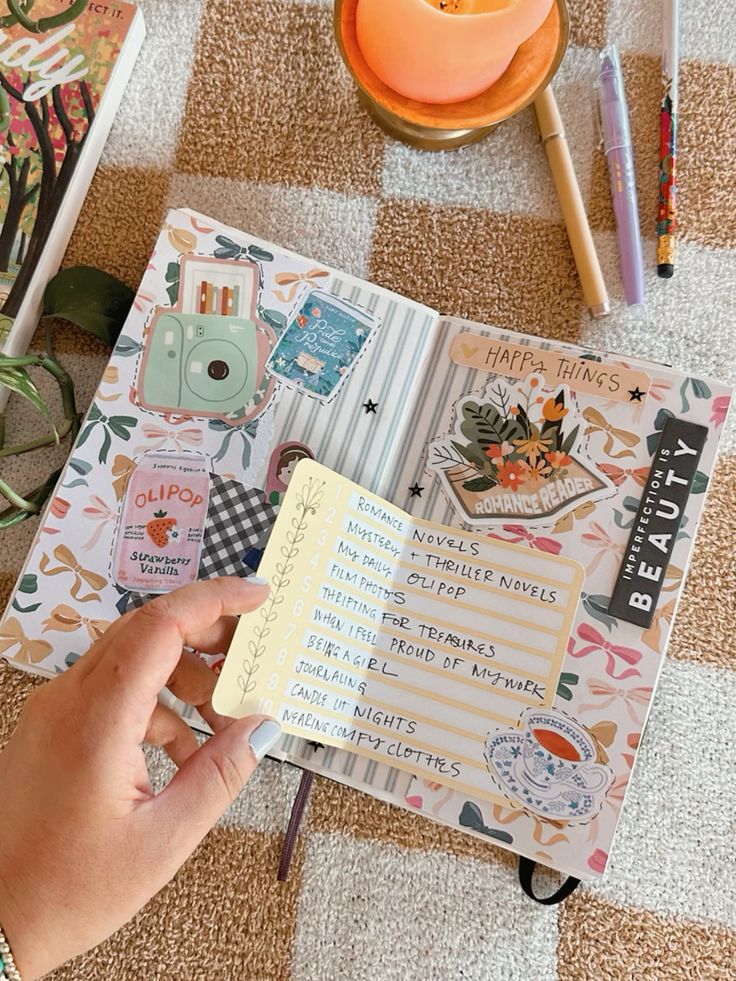 EFFECT IT.
dy
Pride
and
Prejudice
HAPPY THINGS
ROMANCE READER
IMPERFECTION IS
BEAUTY
Supports digestion
OLIPOP
Strawberry
Vanilla
1 ROMANCE NOVELS
2 MYSTERY + THRILLER NOVELS
3 MY DAILY OLIPOP
4 FILM PHOTOS
5 THRIFTING FOR TREASURES
6 WHEN I FEEL PROUD OF MY WORK
7 BEING A GIRL
8 JOURNALING
9 CANDLE LIT NIGHTS
10 WEARING COMFY CLOTHES